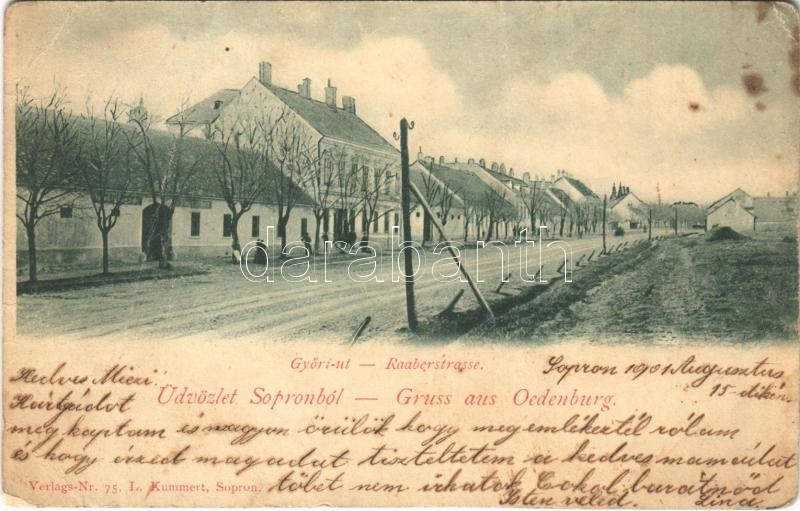 darabanth
Győri-ut — Raaberstrasse.
Sopron 1901 Augusztus
15-dikén
Kedves Miczi
Üdvözlet Sopronból — Gruss aus Oedenburg.
Kártyádat
meg kaptam és nagyon örülök hogy megemlékeztél rólam
és hogy érzed magadat tiszteltetem a kedves mamádat
Verlags-Nr. 75. L. Kummert, Sopron.
többet nem írhatok Csókol barátnőd
Isten veled.